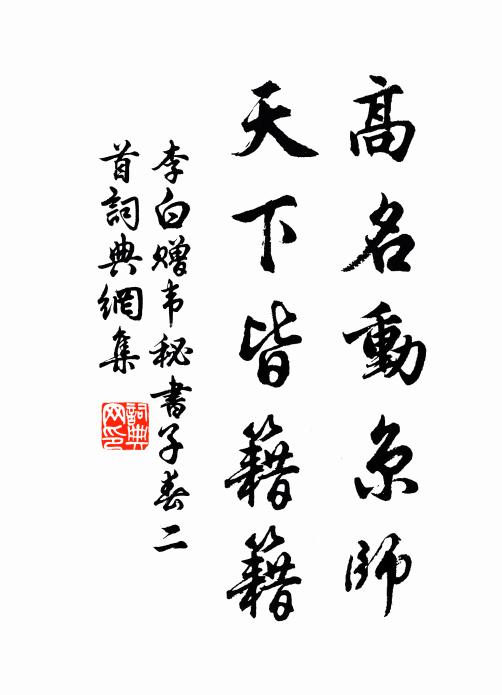 高名動京師
天下皆籍籍
李白赠韦秘書子春二
首詞典網集
詞典
网印